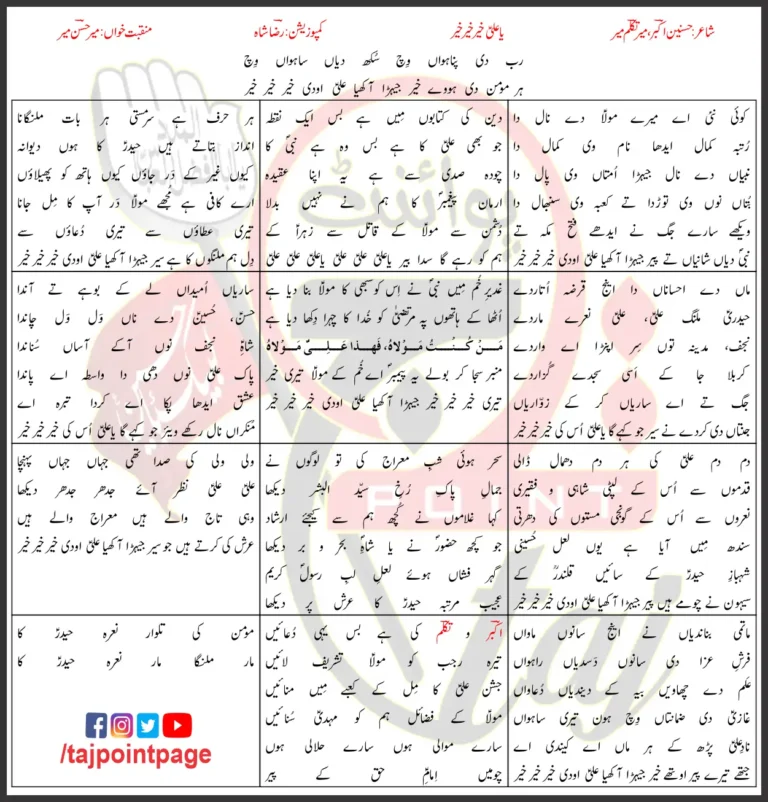 شاعر: حسنین اکبر، میر تکلّم میر
یا علیؑ خیر خیر خیر
کمپوزیشن: رضا شاہ
منقبت خواں: میر حسن میر
رب دی پناہواں وچ سُکھ دیاں ساہواں وچ
ہر مؤمن دی ہووے خیر جیہڑا آکھیا علیؑ اودی خیر خیر خیر
کوئی نئی اے میرے مولاؑ دے نال دا
رُتبہ کمال ایدھا نام وی کمال دا
نبیاں دے نال جیہڑا اُمتاں وی پال دا
بُتاں نوں وی توڑدا تے کعبہ وی سنبھال دا
ویکھے سارے جگ نے ایدھے فتح مکہ تے
نبیؐ دیاں شانیاں تے پیر جیہڑا آکھیا علیؑ اودی خیر خیر خیر
دین کی کتابوں میں ہے بس ایک نقطہ
جو بھی علیؑ کا ہے بس وہ ہے نبیؐ کا
چودہ صدی سے ہے یہ اپنا عقیدہ
ارمان پیغمبرؐ کا ہم نے نہیں بدلا
دُشمن سے مولاؑ کے قاتل سے زہراؑ کے
ہم کو رہے گا سدا بیر یا علیؑ علیؑ علیؑ یا علیؑ علیؑ علیؑ
ہر حرف ہے سرمستی ہر بات ملنگانا
انداز بتاتے ہیں حیدرؑ کا ہوں دیوانہ
کیوں غیر کے دَر جاؤں کیوں ہاتھ کو پھیلاؤں
ارے کافی ہے مُجھے مولاؑ دَر آپ کا مِل جانا
تیری عطاؤں سے تیری دُعاؤں سے
دِل ہم ملنگوں کا ہے سیر جیہڑا آکھیا علیؑ اودی خیر خیر خیر
ماں دے احساناں دا اِنج قرضہ اُتاردے
حیدریؑ ملنگ علیؑ، علیؑ نعرے ماردے
نجف، مدینہ توں سِر اپنڑا اے واردے
کربلا جا کے اُسی سجدے گُزاردے
جگ تے اے ساریاں کر کے زوّاریاں
جنتاں دی کردے نے سیر جو کہے گا یا علیؑ اُس کی خیر خیر خیر
غدیرِ خُم میں نبیؐ نے اِس کو سبھی کا مولاؑ بنا دیا ہے
اُٹھا کے ہاتھوں پہ مرتضیٰؑ کو خُدا کا چہرا دِکھا دیا ہے
مَنْ كُنْتُ مَوْلَاهُ، فَهٰذا عَلِيٌّ مَوْلَاهُ
منبر سجا کر بولے یہ پیمبرؐ اے خُم کے مولاؑ تیری خیر
تیری خیر خیر خیر جیہڑا آکھیا علیؑ اودی خیر خیر خیر
ساریاں اُمیداں لے کے بوہے تے آندا
حسنؑ، حُسینؑ دے ناں وَل وَل چاندا
شاہِ نجف نوں آکے آساں سُناندا
پاک علیؑ نوں دھی دا واسطہ اے پاندا
عشق ایدھا پکا اے کردا تبرہ اے
مُنکراں نال رکھے ویئر جو کہے گا یا علیؑ اُس کی خیر خیر خیر
دم دم علیؑ کی ہر دم دھمال ڈالی
قدموں سے اُس کے لپٹی شاہی و فقیری
نعروں سے اُس کے گونجی مستوں کی دھرتی
سندھ میں آیا ہے یوں لعل حُسینی
شہبازِ حیدرؑ کے سائیں قلندرؒ کے
سیہون نے چومے ہیں پیر جیہڑا آکھیا علیؑ اودی خیر خیر خیر
سحر ہوئی شبِ معراج کی تو لوگوں نے
جمالِ پاکِ رُخِ سیّد البشرؐ دیکھا
کہا غلاموں نے کُچھ ہم سے کیجئے ارشاد
جو کچھ حضورؐ نے یا شاہِ بحر و بر دیکھا
گہر فشاں ہوئے لعلِ لبِ رسولِؐ کریم
عجیب مرتبہ حیدرؑ کا عرش پر دیکھا
ولی ولی کی صدا تھی جہاں جہاں پہنچا
علیؑ علیؑ نظر آئے جدھر جدھر دیکھا
وہی تاج والے ہیں معراج والے ہیں
عرش کی کرتے ہیں جو سیر جیہڑا آکھیا علیؑ اودی خیر خیر خیر
ماتمی بناندیاں نے اِنج سانوں ماواں
فرشِ عزا دی سانوں دَسدیاں راہواں
علم دے چھاویں بیہ کے دیندیاں دُعاواں
غازیؑ دی ضمانتاں وِچ ہون تیری ساہواں
نادِ علیؑ پڑھ کے ہر ماں اے کیندی اے
جتھے تیرے پیر اوتھے خیر جیہڑا آکھیا علیؑ اودی خیر خیر خیر
اکبرؔ و تکلّمؔ کی ہے بس یہی دُعائیں
تیرہ رجب کو مولاؑ تشریف لائیں
جشن علیؑ کا مِل کے کعبے میں منائیں
مولاؑ کے فضائل ہم کو مہدیؑ سُنائیں
سارے موالی ہوں سارے حلالی ہوں
چومیں امامِؑ حق کے پیر
مؤمن کی تلوار نعرہ حیدرؑ کا
مار ملنگا مار نعرہ حیدرؑ کا
/tajpointpage
پوائنٹ
تاج
POINT
taj